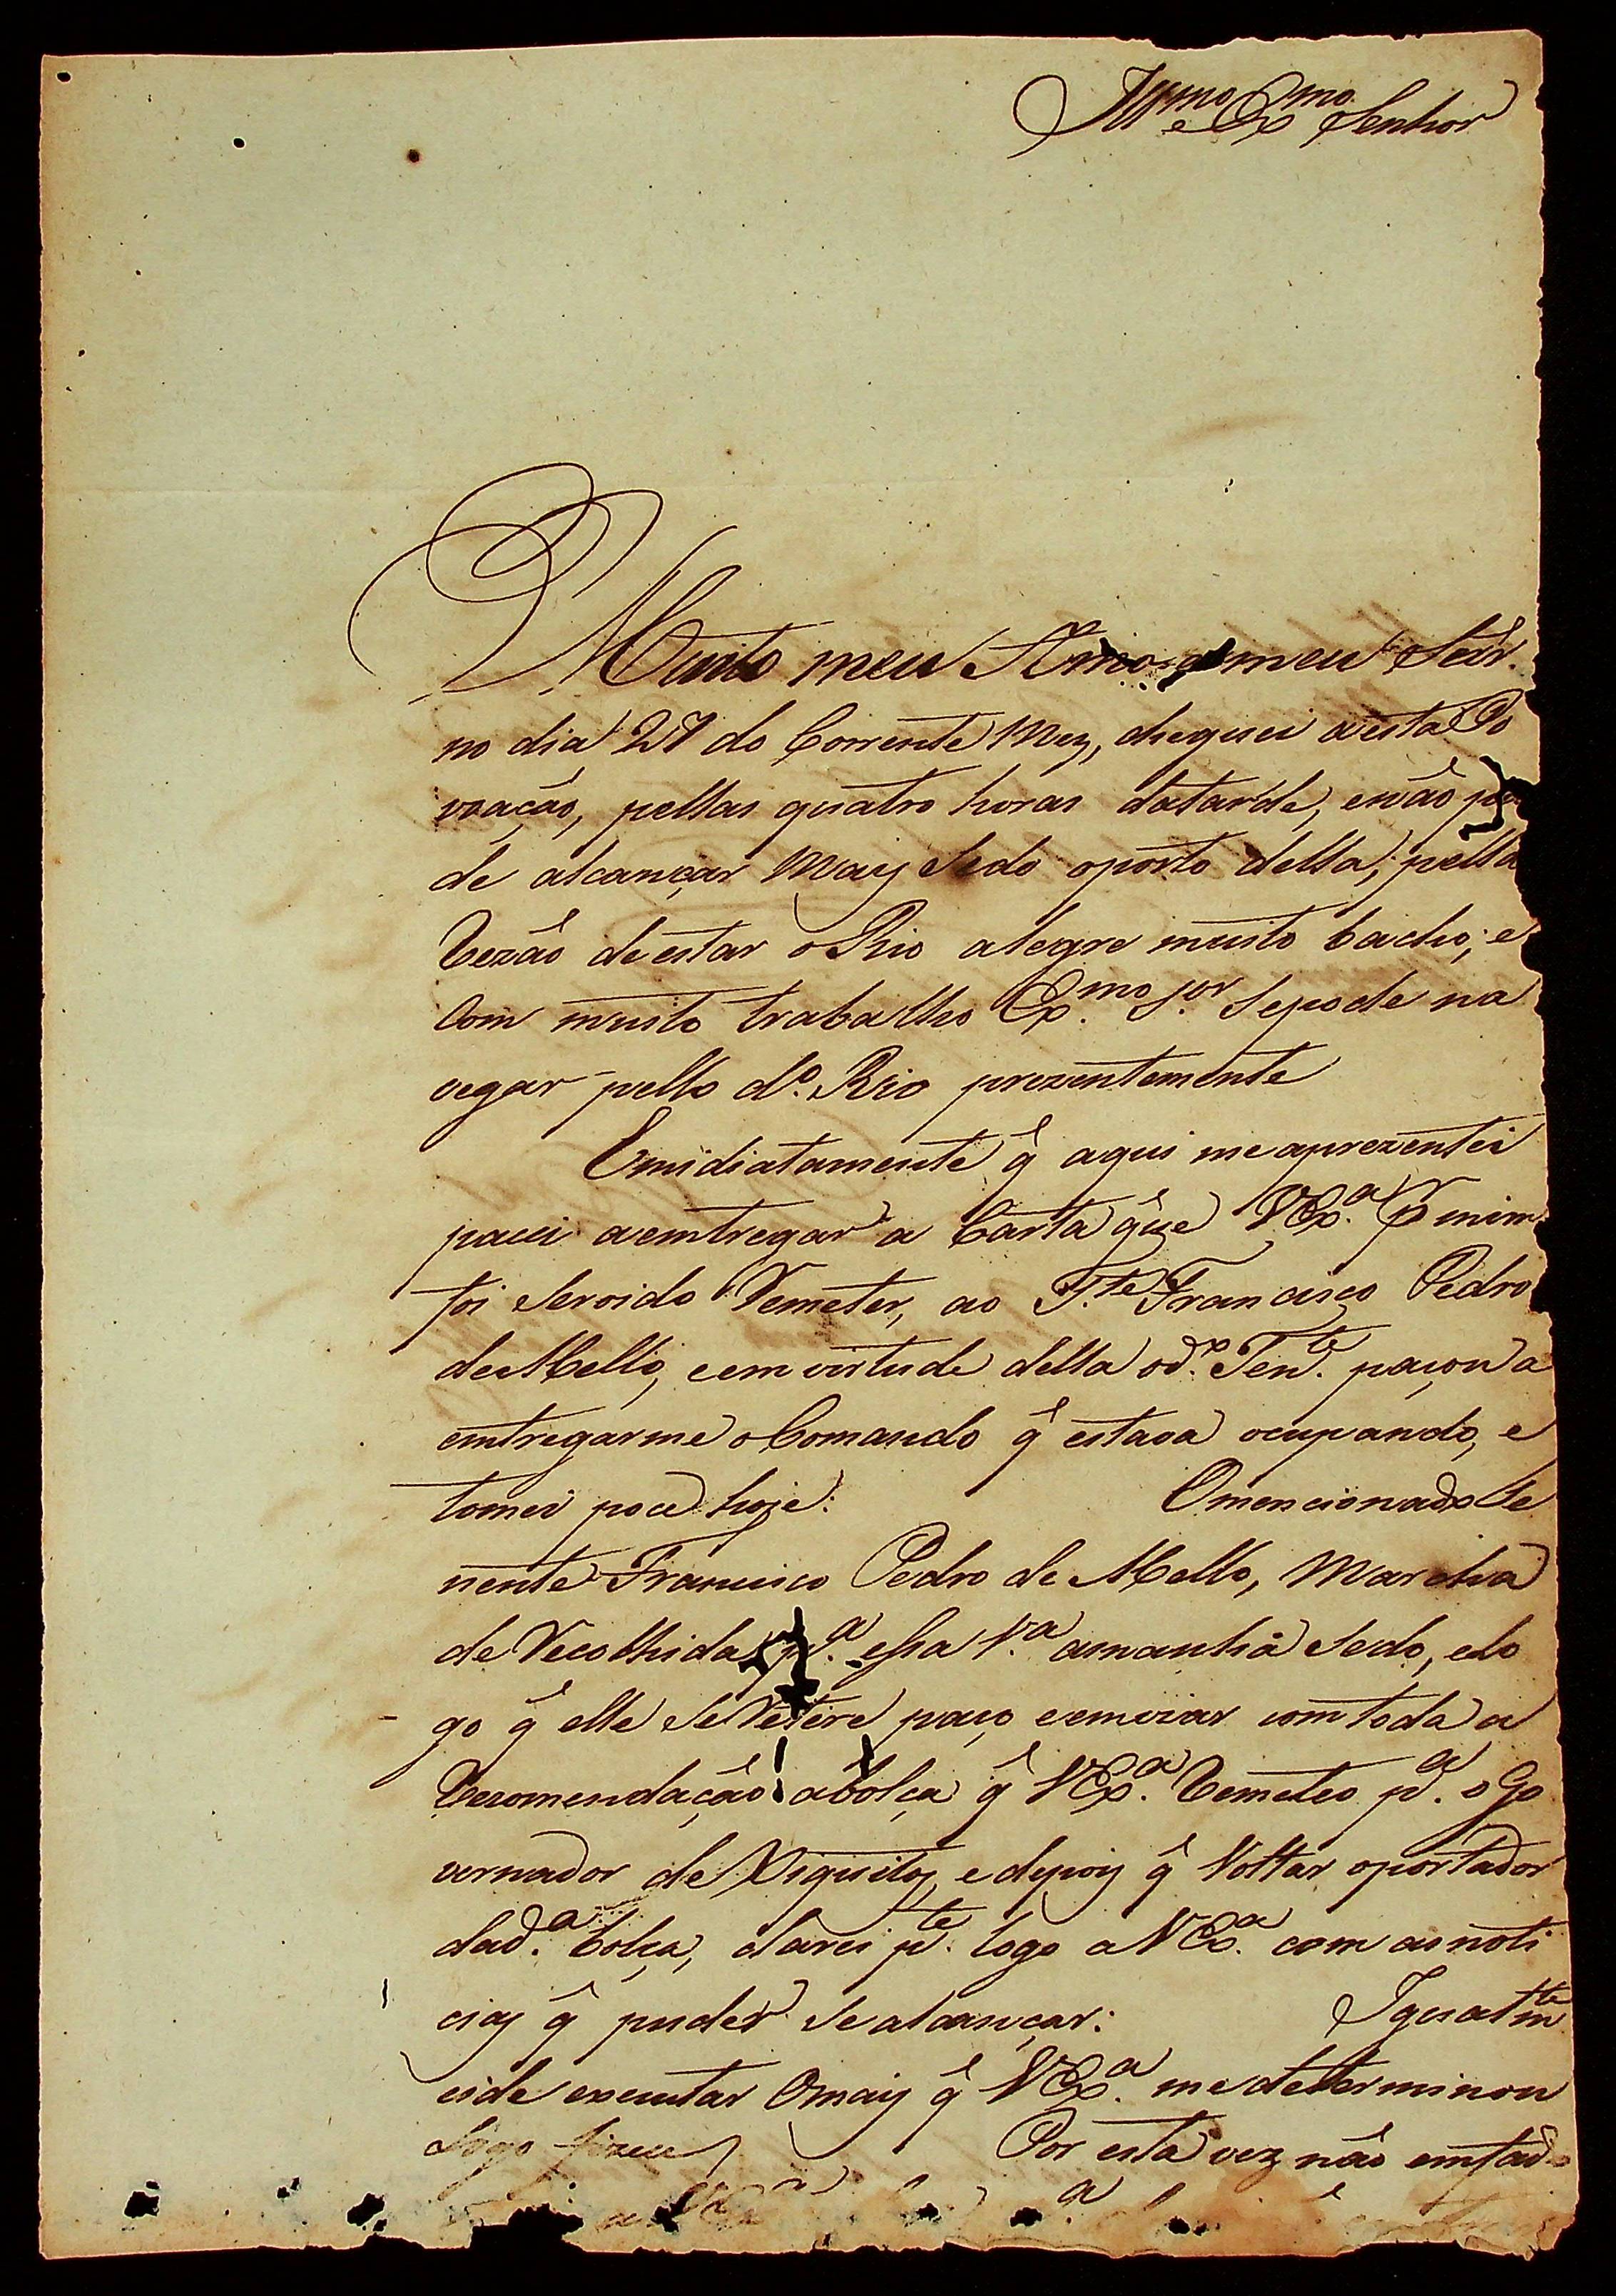 Illmo e Exmo Senhor
Muito meu Amo e meu Senr.
no dia 27 do Corrente Mez, cheguei a esta Po
voação, pellas quatro horas datarde, enão pu
de alcançar Mais Sedo oporto della, pella
Rezão de estar o Rio alegre muito bacho; e
Com muito trabalho Ex.mo S.or Sepode na
vegar pello d.o Rio prezentemente
Emidiatamente q̃ aqui me aprezentei
pacei aemtregar a Carta que VEx.a P mim
foi Servido Remeter, ao T.te Francisco Pedro
deMello, eem virtude della od.o Ten.te paçou a
emtregarme oComando q̃ estava ocupando, e
tomei poce hoje: Omencionado Te
nente Francisco Pedro de Mello, Marcha
de Recolhida p.a essa V.a amanhã Sedo, elo
go q̃ elle SeRetire paço eemviar comtoda a
Recomendação abolça q̃ VEx.a Remeteo p.a o Go
vernador de Xiquitos, e depois q̃ Voltar oportador
dad.a bolça, darei p.te logo aVEx.a com asnoti
cias q̃ puder Se alcançar: Igualm.te
eide executar Omais q̃ VEx.a me determinou
Por esta vez não emfado